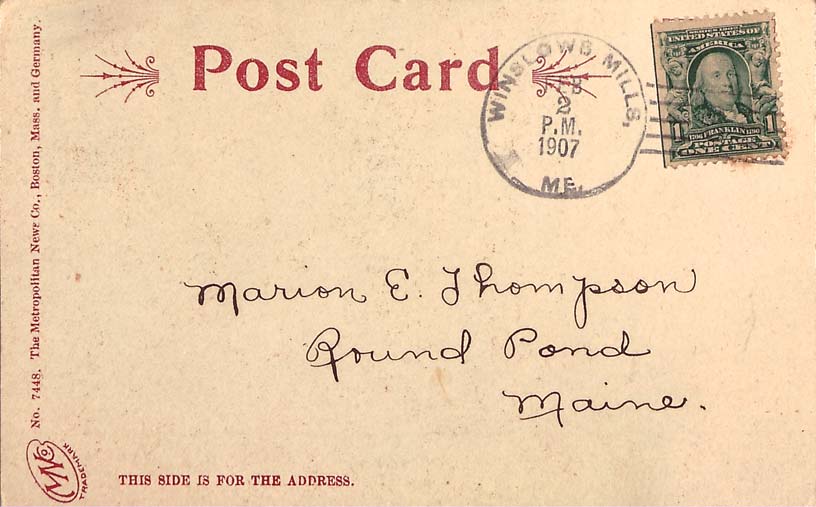 Post Card
WINSLOWS MILLS,
2
P.M.
1907
ME.
SERIES 1902
UNITED STATES OF
AMERICA
1 1
1706 FRANKLIN 1790
POSTAGE
ONE CENT
Marion E. Thompson
Round Pond
Maine.
No. 7448. The Metropolitan News Co., Boston, Mass. and Germany.
MNCo
TRADEMARK
THIS SIDE IS FOR THE ADDRESS.